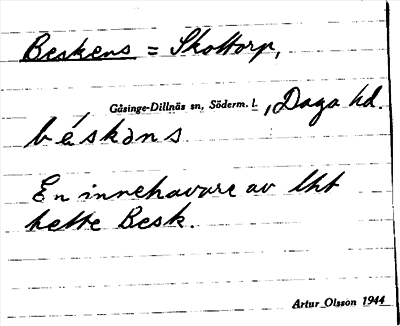 Beskens = Skottorp,
Gåsinge-Dillnäs sn, Söderm. l., Daga hd.
béskəns
En innehavare av lht
hette Besk.
Artur Olsson 1944